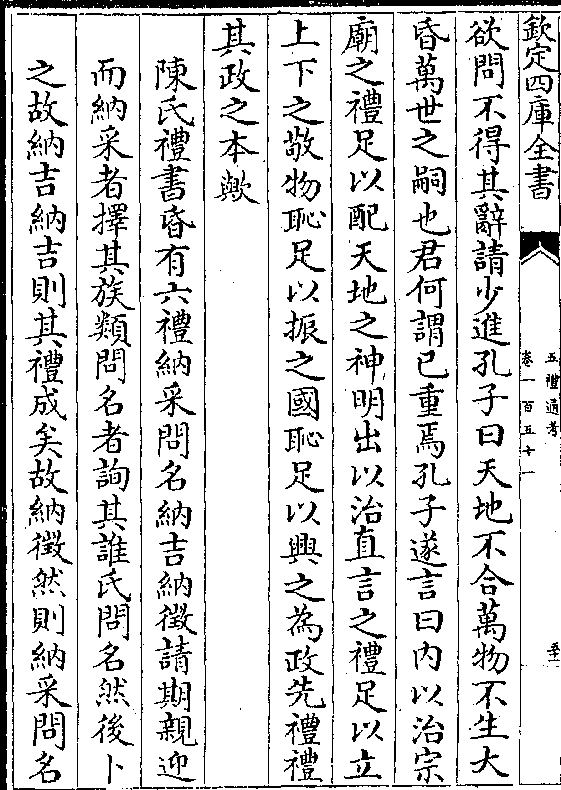 欽定四庫全書
五禮通考
卷一百五十一
欲問不得其辭請少進孔子曰天地不合萬物不生大
昏萬世之嗣也君何謂已重焉孔子遂言曰内以治宗
廟之禮足以配天地之神明出以治直言之禮足以立
上下之敬物恥足以振之國恥足以興之為政先禮禮
其政之本歟
陳氏禮書昏有六禮納采問名納吉納徵請期親迎
而納采者擇其族類問名者詢其誰氏問名然後卜
之故納吉納吉則其禮成矣故納徵然則納采問名